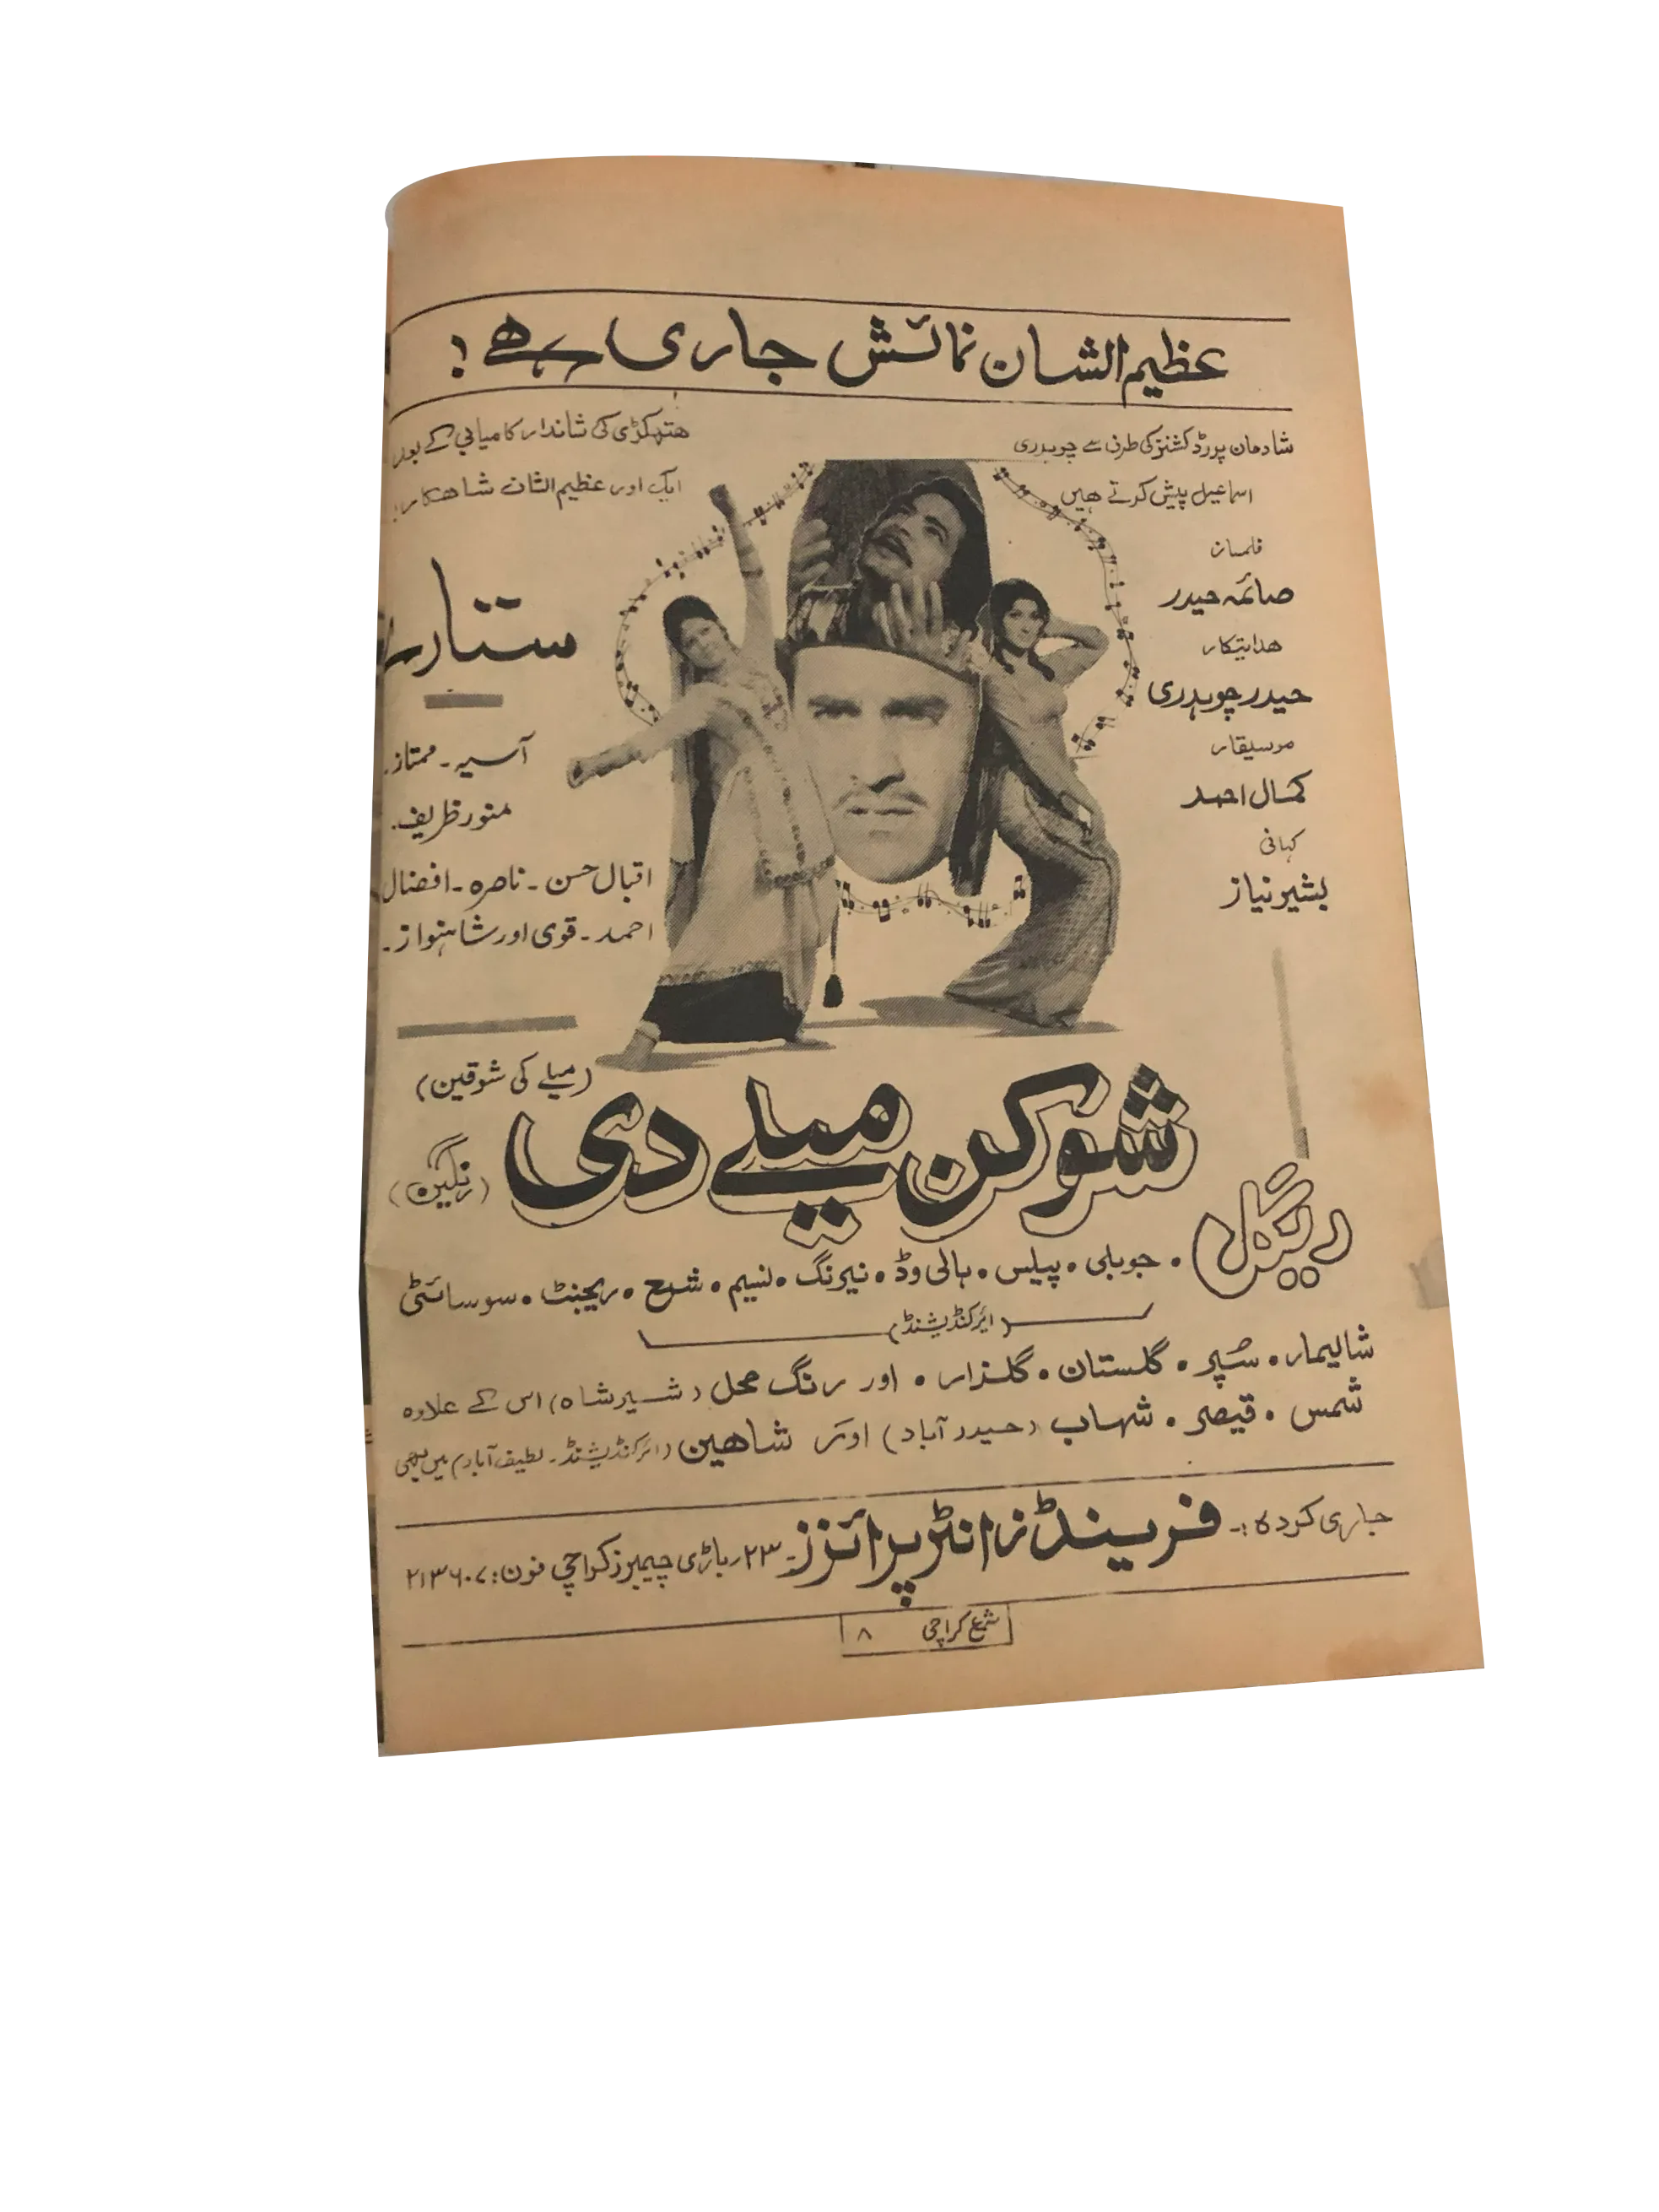 عظیم الشان نمائش جاری ہے!
شادمان پروڈکشنز کی طرف سے چوہدری
اسماعیل پیش کرتے ہیں
ہتھکڑی کی شاندار کامیابی کے بعد
ایک اور عظیم الشان شاہکار!
فلمساز
صائمہ حیدر
ہدایتکار
حیدر چوہدری
موسیقار
کمال احمد
کہانی
بشیر نیاز
ستارے
آسیہ ۔ ممتاز ۔
منور ظریف ۔
اقبال حسن ۔ ناصرہ ۔ افضال
احمد ۔ قوی اور شاہنواز ۔
(میلے کی شوقین)
شوکن میلے دی
(رنگین)
ریگل • جوبلی • پیلس • ہالی وڈ • نیرنگ • نسیم • شمع • ریجنٹ • سوسائٹی
(ائرکنڈیشنڈ)
شالیمار • سُپر • گلستان • گلزار • اور رنگ محل (شیر شاہ) اس کے علاوہ
شمس • قیصر • شہاب (حیدر آباد) اور شاہین (ائرکنڈیشنڈ ۔ لطیف آباد) میں بھی
جاری کردہ :۔ فرینڈز انٹرپرائزز ۔ ۲۳ ر باڑی چیمبرز کراچی فون : ۲۱۳۶۰۷
شمع کراچی ۸